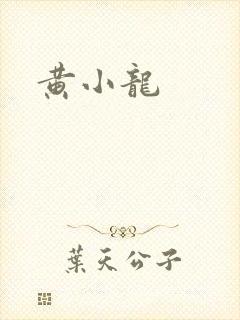 黄小龍
葉天公子